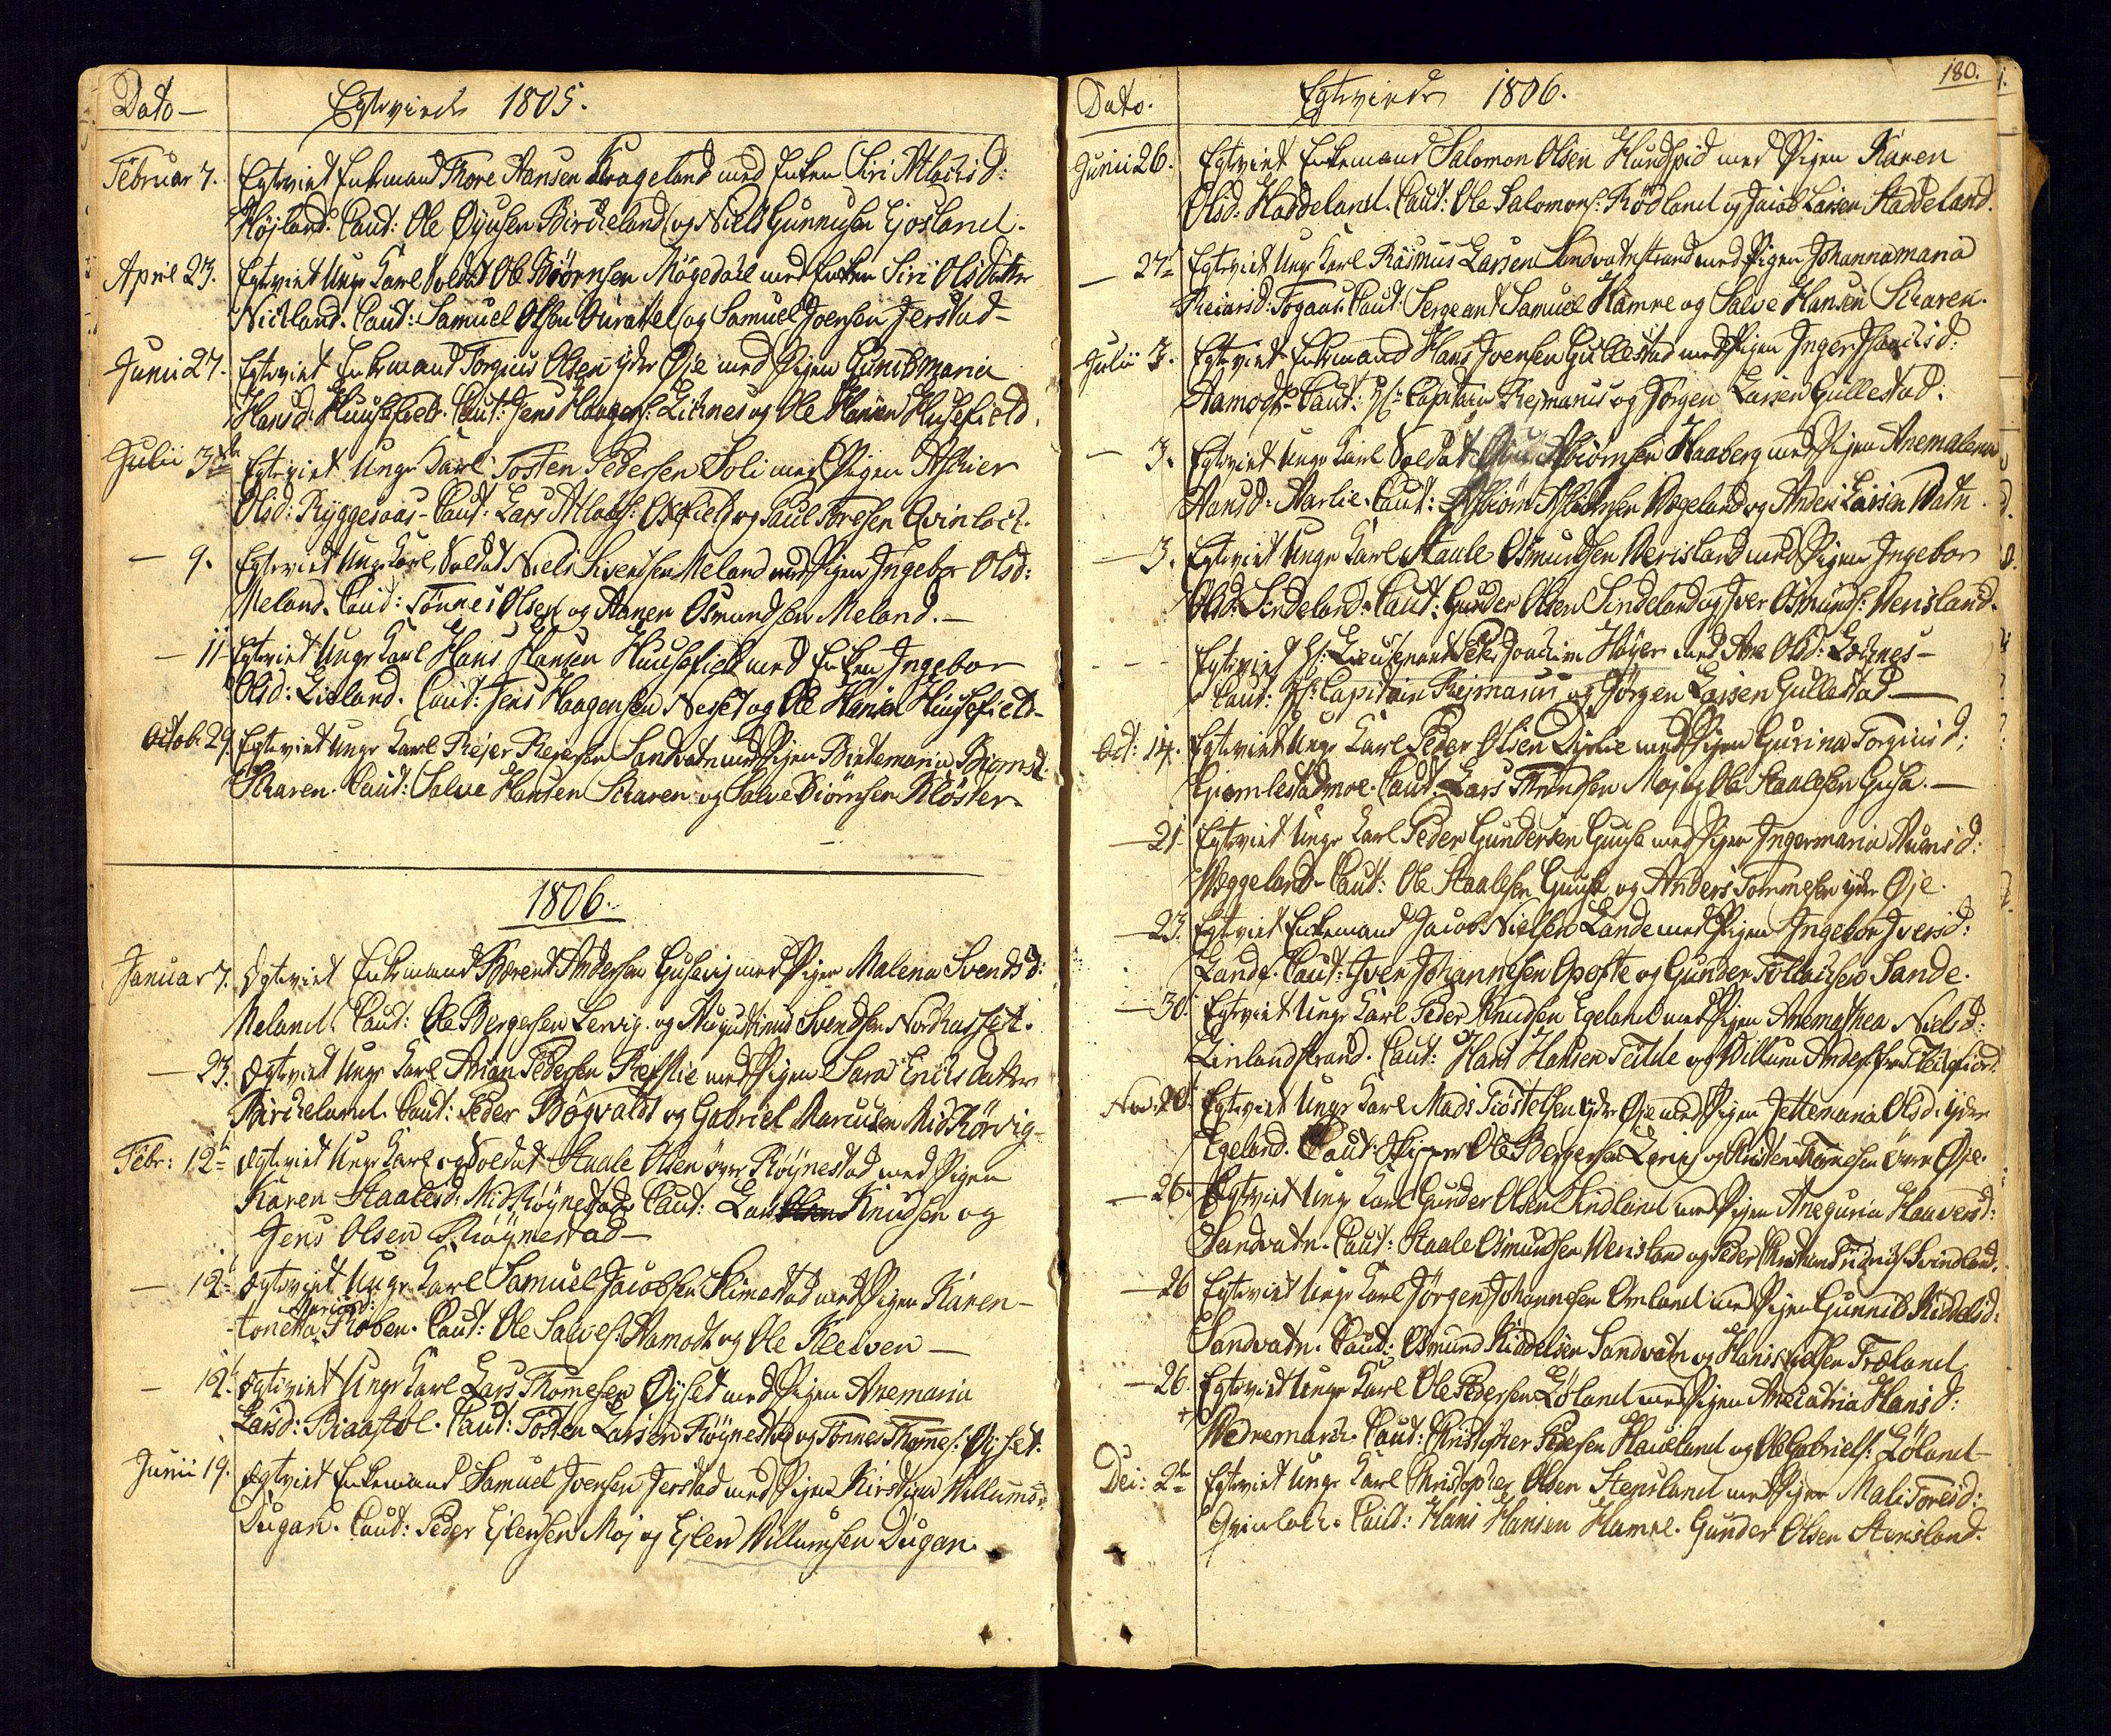 Dato —
Egteviede 1805.
Februar 7. Egteviet Enkemand Thore Hansen Krageland med Enken Siri Atlachsd:
Højland. Caut: Ole Øyusen Bircheland og Niels Gunnusen Eiosland.
April 23. Egteviet Unge Karl Soldat Ole Biörnsen Mögedahl med Enken Siri Olsdatter
Nichland. Caut: Samuel Olsen Ouratel og Samuel Joensen Jerstad —
Junii 27. Egteviet Enkemand Torgius Olsen ydre Øje med Pigen Gunildmaria
Hansd: Huusefield. Caut: Jens Haagens: Lichnes og Ole Hansen Husefield.
Julii 3die Egteviet Unge Karl Tosten Pedersen Soli med Pigen Aschier
Olsd: Ryggesaas — Caut: Lars Atlachs: Oxefield og Paul Toresen Qvinloch.
— 9. Egteviet Unge Karl Soldat Niels Sivertsen Meland med Pigen Ingebor Olsd:
Meland. Caut: Tönnes Olsen og Aanen Osmundsen Meland. —
— 11 Egteviet Unge Karl Hans Hansen Huusefield med Enken Ingebor
Olsd: Lisland. Caut: Jens Haagensen Neset og Ole Hansen Huusefield —
Octob: 29. Egteviet Unge Karl Rejer Rejersen Sandvatn med Pigen Birtemaria Biornsd:
Scharen. Caut: Salve Hansen Scharen og Salve Biörnsen Klöster —
1806.
Januar 7. Egteviet Enkemand Berent Andersen Gusevig med Pigen Malena Svendsd:
Meland. Caut: Ole Bergersen Lervig og Augustinus Svendsen Nordhasset.
— 23. Egteviet Unge Karl Arian Pedersen Refslie med Pigen Sara Erichsdatter
Bircheland. Caut: Peder Bögvaldt og Gabriel Marcusen Midthörvig —
Febr: 12te Egteviet Unge Karl og Soldat Staale Olsen övre Röynestad med Pigen
Karen Staalesd: Mid Röynestad. Caut: Lars Olsen Knudsen og
Jens Olsen Röynestad —
— 12te Egteviet Unge Karl Samuel Jacobsen Slimestad med Pigen Karen —
Mariusd:
tonetta Roben. Caut: Ole Salves: Aamodt og Ole Kleiven —
— 12te Egteviet Unge Karl Lars Thomesen Øÿset med Pigen Anemaria
Larsd: Braastöl. Caut: Tosten Larsen Röynestad og Tönnes Thomes: Øÿset.
Junii 19. Egteviet Enkemand Samuel Joensen Jerstad med Pigen Kirstina Willumsd:
Dugan. Caut: Peder Ejlertsen Moj og Ejlert Willumsen Dugan.
180.
Dato.
Egteviede 1806.
Junii 26. Egteviet Enkemand Salomon Olsen Hundspid med Pigen Karen
Olsd: Haddeland. Caut: Ole Salomons: Rödland og Jacob Larsen Haddeland.
— 27de Egteviet Unge Karl Rasmus Larsen Sandvatnstrand med Pigen Johannamaria
Reiarsd: Fogaas. Caut: Sergeant Samuel Hamre og Salve Hansen Scharen.
Julii 3. Egteviet Enkemand Hans Joensen Gullestad med Pigen Inger Isachsd:
Aamodt. Caut: Hr: Capitain Rejmarus og Jörgen Larsen Gullestad.
— 3. Egteviet Unge Karl Soldat Asbiörnsen Haaberg med Pigen Anemalena
Hansd: Harlie. Caut: Asbiörn Asbiörnsen Wegeland og Anders Larsen Watn.
— 3. Egteviet Unge Karl Staale Osmundsen Werisland med Pigen Ingebor
Olsd: Sindeland. Caut: Gunder Olsen Sindeland og Iver Osmunds: Werisland.
— Egteviet Hr: Lieutenant Peter Joachim Höyer med Ane Olsd: Lochnes —
Caut: Hr: Capitain Rejmarus og Jörgen Larsen Gullestad —
Oct: 14. Egteviet Unge Karl Peder Olsen Dyrlie med Pigen Gurina Torgiusd:
Giemlestadmoe. Caut: Lars Thrundsen Moj og Ole Staalesen Guse. —
— 21. Egteviet Unge Karl Peder Gundersen Guuse med Pigen Ingermaria Aunsd:
Weggeland. Caut: Ole Staalesen Guuse og Anders Tommesen ydre Øje.
— 23. Egteviet Enkemand Jacob Nielsen Lande med Pigen Ingebor Iversd:
Lande. Caut: Iver Johannesen Opofte og Gunder Tollachsen Sande.
— 30. Egteviet Unge Karl Peder Knudsen Egeland med Pigen Anemathea Nielsd:
Linlandstrand. Caut: Hans Hansen Feilde og Willum Anders: fra Flechefiord.
Nov: 20. Egteviet Unge Karl Mads Tiöstelsen ydre Øje med Pigen Jettemaria Olsd: ydre
Egeland. Caut: Skipper Ole Bergersen Lervig og Anders Tommesen övre Øje.
— 26. Egteviet Unge Karl Gunder Olsen Sindland med Pigen Aneguria Haaversd:
Sandvatn. Caut: Staale Osmundsen Werisland og Peder Christian Fridrichs: Svindland.
— 26 Egteviet Unge Karl Jörgen Johannesen Omland med Pigen Gunnild Kiddelsd:
Sandvatn. Caut: Osmund Kiddelsen Sandvatn og Hans Kielsen Træland
— 26. Egteviet Unge Karl Ole Pedersen Löland med Pigen Anecatria Hansd:
+ Wedremarch. Caut: Christopher Pedersen Haueland og Ole Gabriels: Löland —
Dec: 2den Egteviet Unge Karl Christopher Olsen Stensland med Pigen Mali Toresd:
Qvinloch. Caut: Hans Hansen Hamre. Gunder Olsen Stensland.